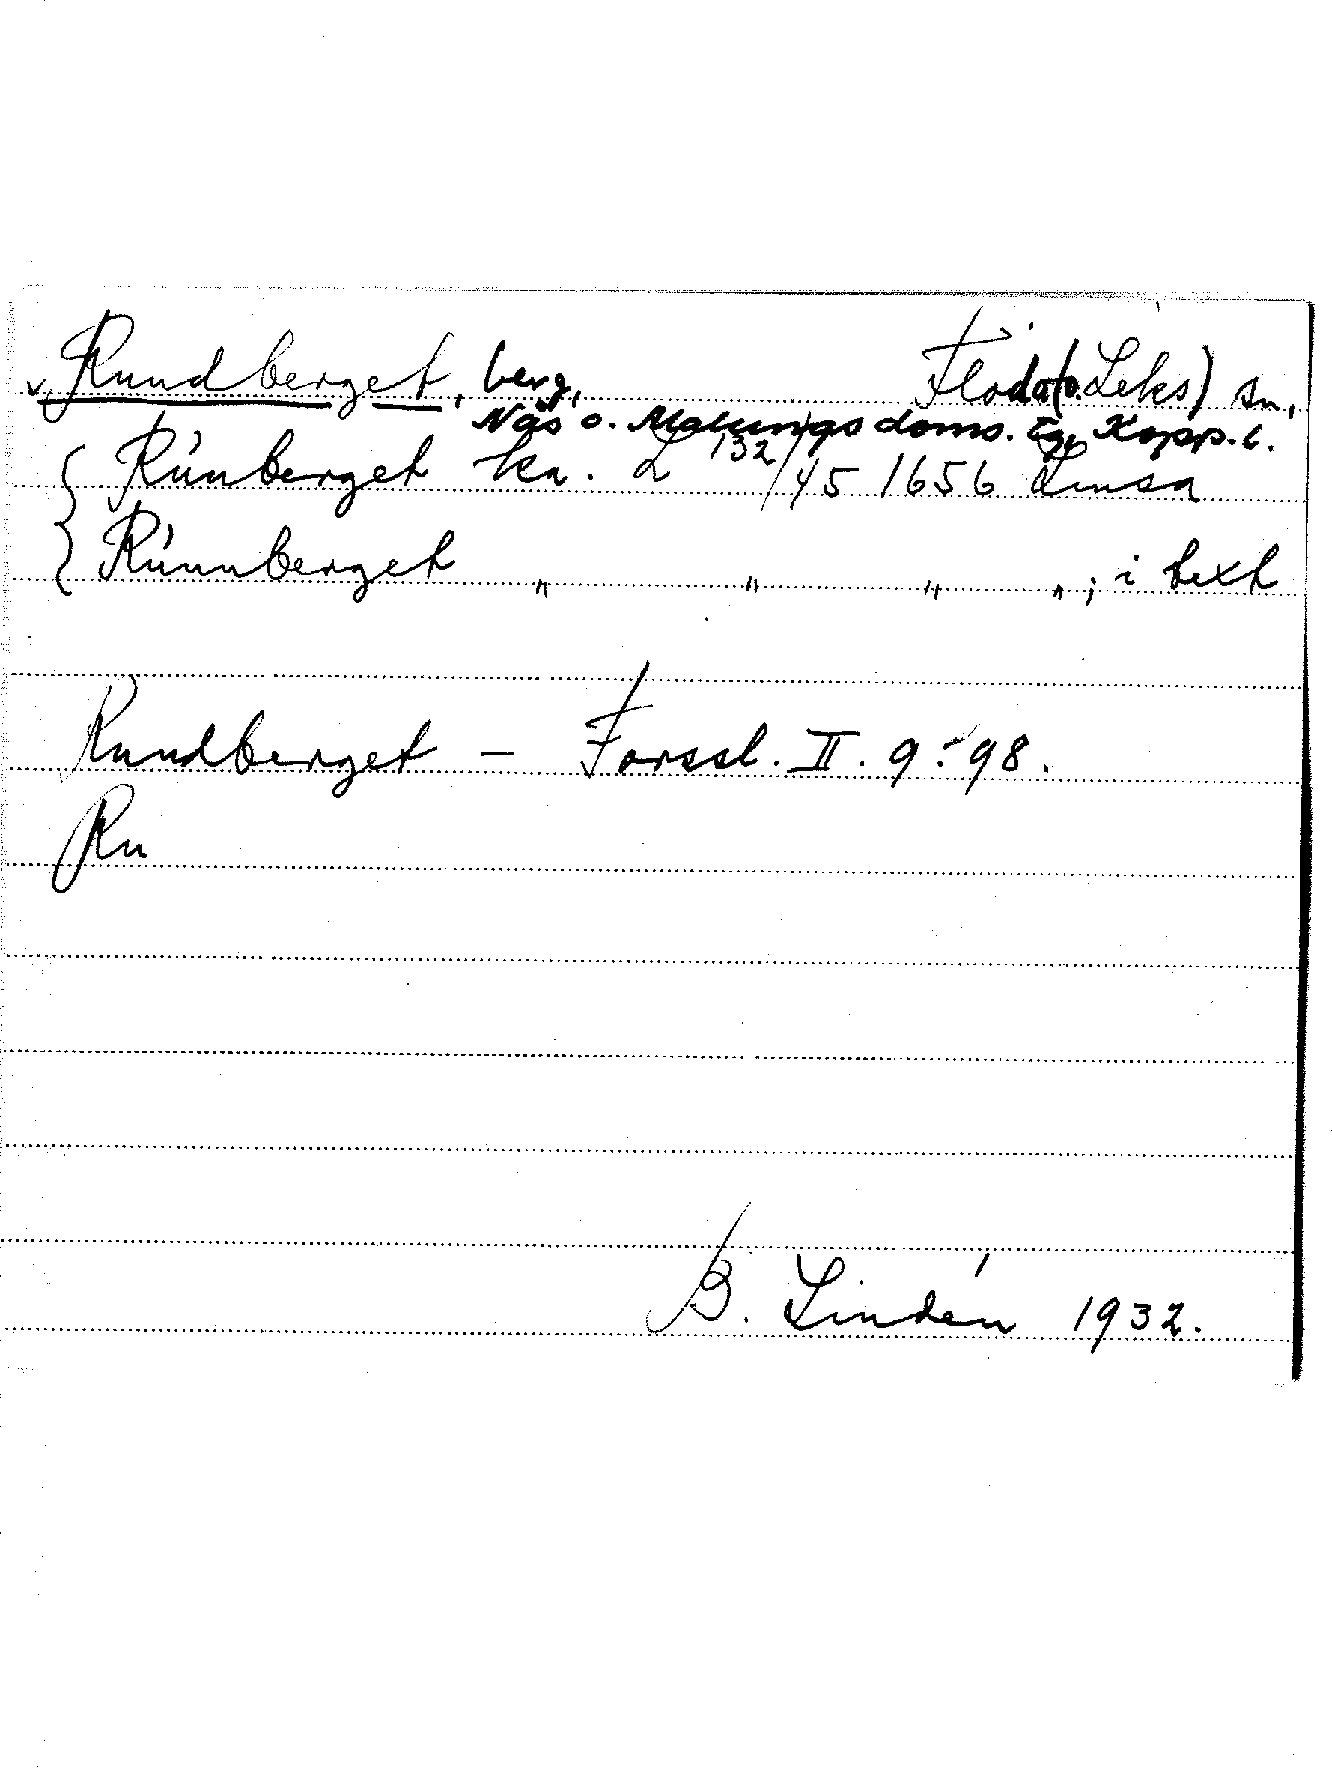 Rundberget, berg, Floda (o. Leks) sn,
Nås o. Malungs doms. tgs, Kopp. l.
Rúnberget ka. L 132/45 1656 Limsa
Rúnnberget " " " " ; i text
Rundberget – Forssl. II. 9:98.
Ru
B. Lindén 1932.